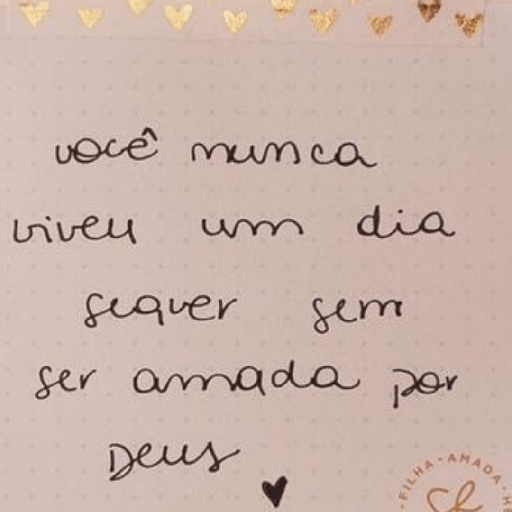 você nunca
viveu um dia
sequer sem
ser amada por
Deus
FILHA · AMADA · HE